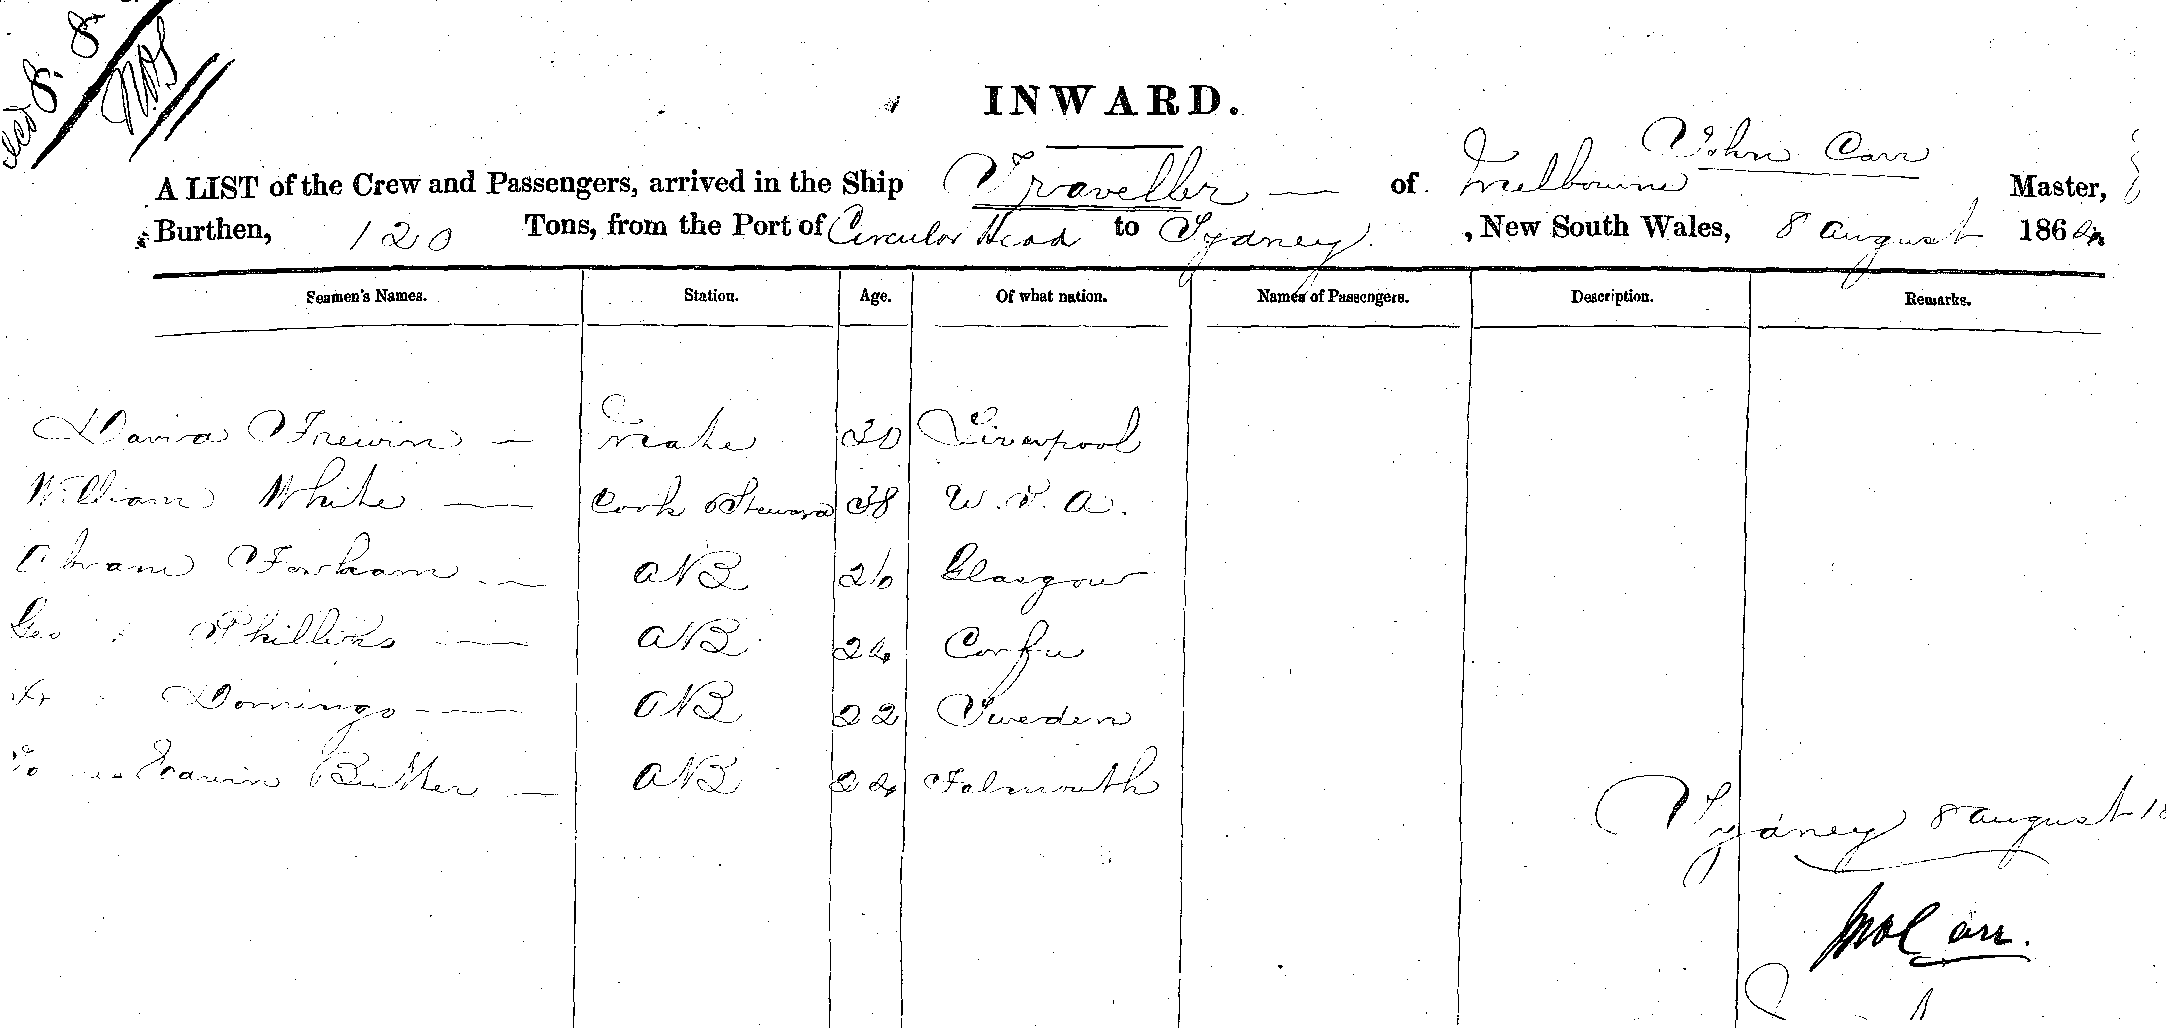 INWARD.
John Carr
A LIST of the Crew and Passengers, arrived in the Ship Traveller — of Melbourne Master,
Burthen, 120 Tons, from the Port of Circular Head to Sydney , New South Wales, 8 August 186
Seamen's Names. Station. Age. Of what nation. Names of Passengers. Description. Remarks.
David Trewin — Mate 30 Liverpool
William White — Cook & Steward 38 U.S.A.
Abram Forham — AB 26 Glasgow
Geo Phillips — AB 24 Corfu
Domingo — AB 22 Sweden
Butler — AB 24 Falmouth
Sydney 8 August 18
Jno Carr.